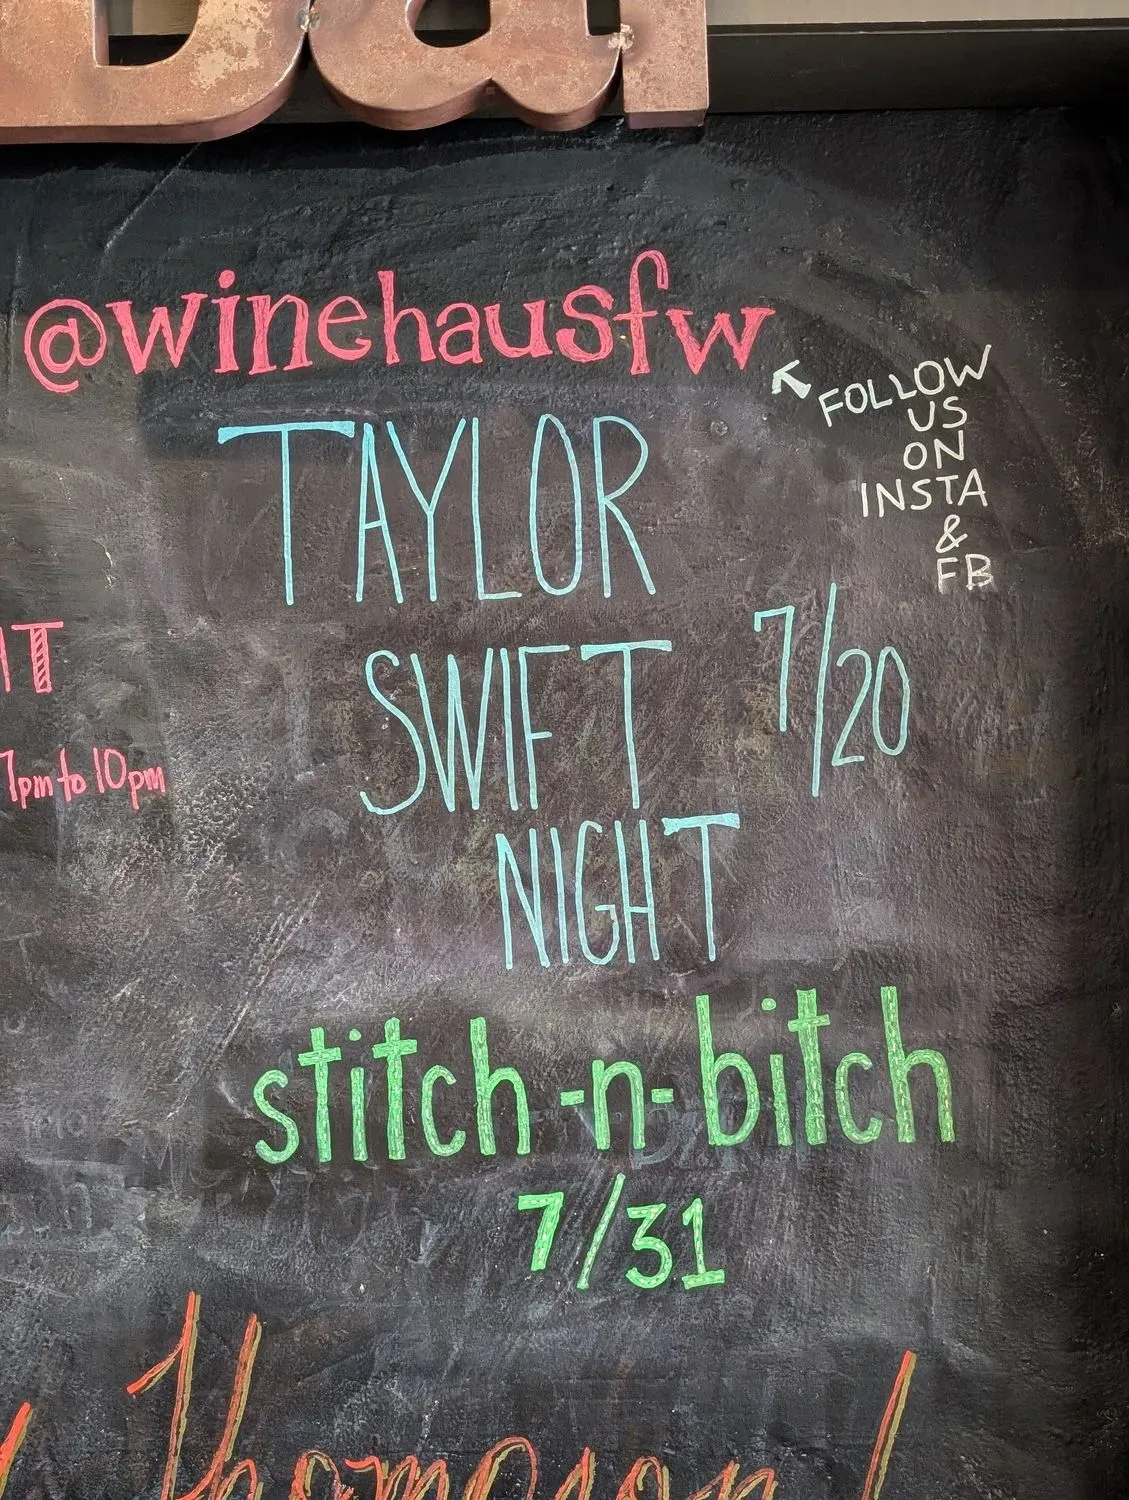 Bar
@winehausfw
FOLLOW
US
ON
INSTA
&
FB
TAYLOR
SWIFT
NIGHT
7/20
7pm to 10pm
stitch-n-bitch
7/31
Thompson!